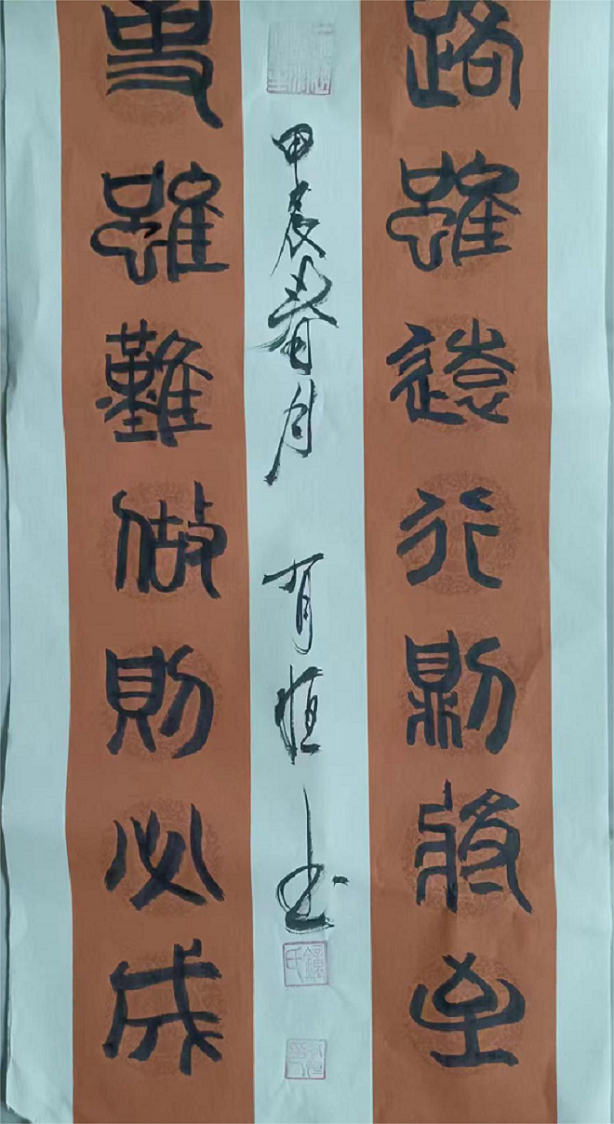 路雖遠行則將至
甲辰春月 有恒书
事雖難做則必成